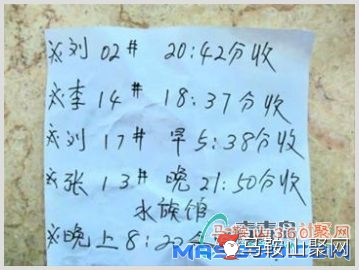 ※刘 02# 20:42分收
※李 14# 18:37分收
※刘 17# 早5:38分收
※张 13# 晚21:50分收
水族馆
※晚上8:22分
马鞍山聚网